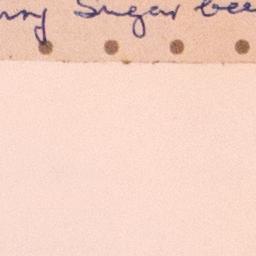 Sugar bee